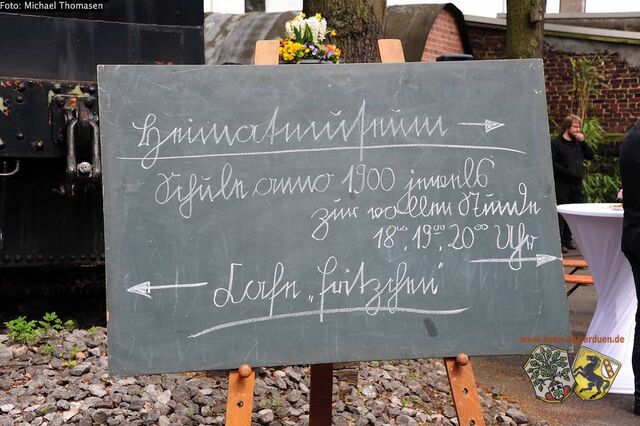 Foto: Michael Thomasen
Heimatmuseum →
Schule anno 1900 jeweils
zur vollen Stunde
18:00, 19:00, 20:00 Uhr
← Cafe „Fritzchen" →